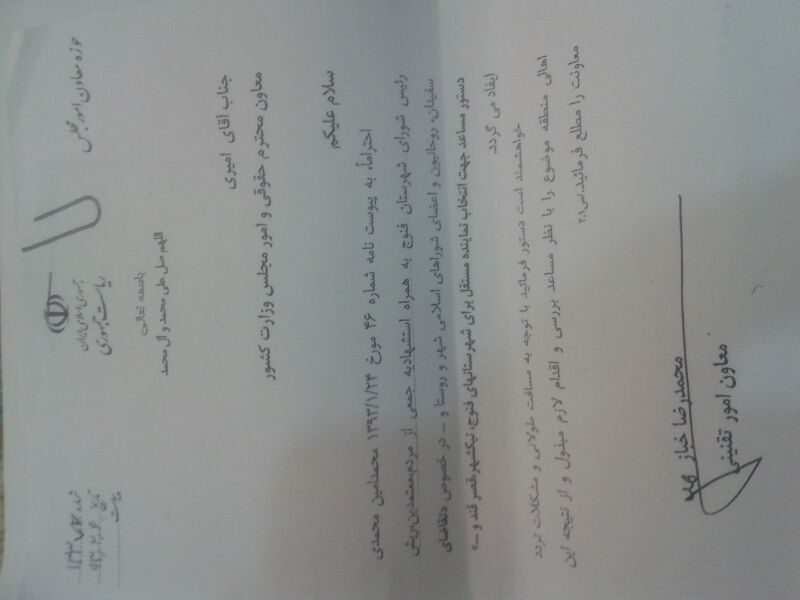 حوزه معاون امور مجلس
جمهوری اسلامی ایران
ریاست جمهوری
شماره
تاریخ
پیوست
باسمه تعالی
اللهم صل علی محمد و آل محمد
جناب آقای امیری
معاون محترم حقوقی و امور مجلس وزارت کشور
سلام علیکم
احتراماً، به پیوست نامه شماره ۴۶ مورخ ۱۳۹۳/۱/۲۴ محمدامین محمدی
رئیس شورای شهرستان فنوج به همراه استشهادیه جمعی از مردم،معتمدین،ریش
سفیدان، روحانیون و اعضای شوراهای اسلامی شهر و روستا و ... در خصوص «تقاضای
دستور مساعد جهت انتخاب نماینده مستقل برای شهرستانهای فنوج، نیکشهر،قصر قند و ...»
ایفاد می گردد.
خواهشمند است دستور فرمائید با توجه به مسافت طولانی و مشکلات تردد
اهالی منطقه موضوع را با نظر مساعد بررسی و اقدام لازم مبذول و از نتیجه این
معاونت را مطلع فرمائید.
محمدرضا خباز
معاون امور تقنینی